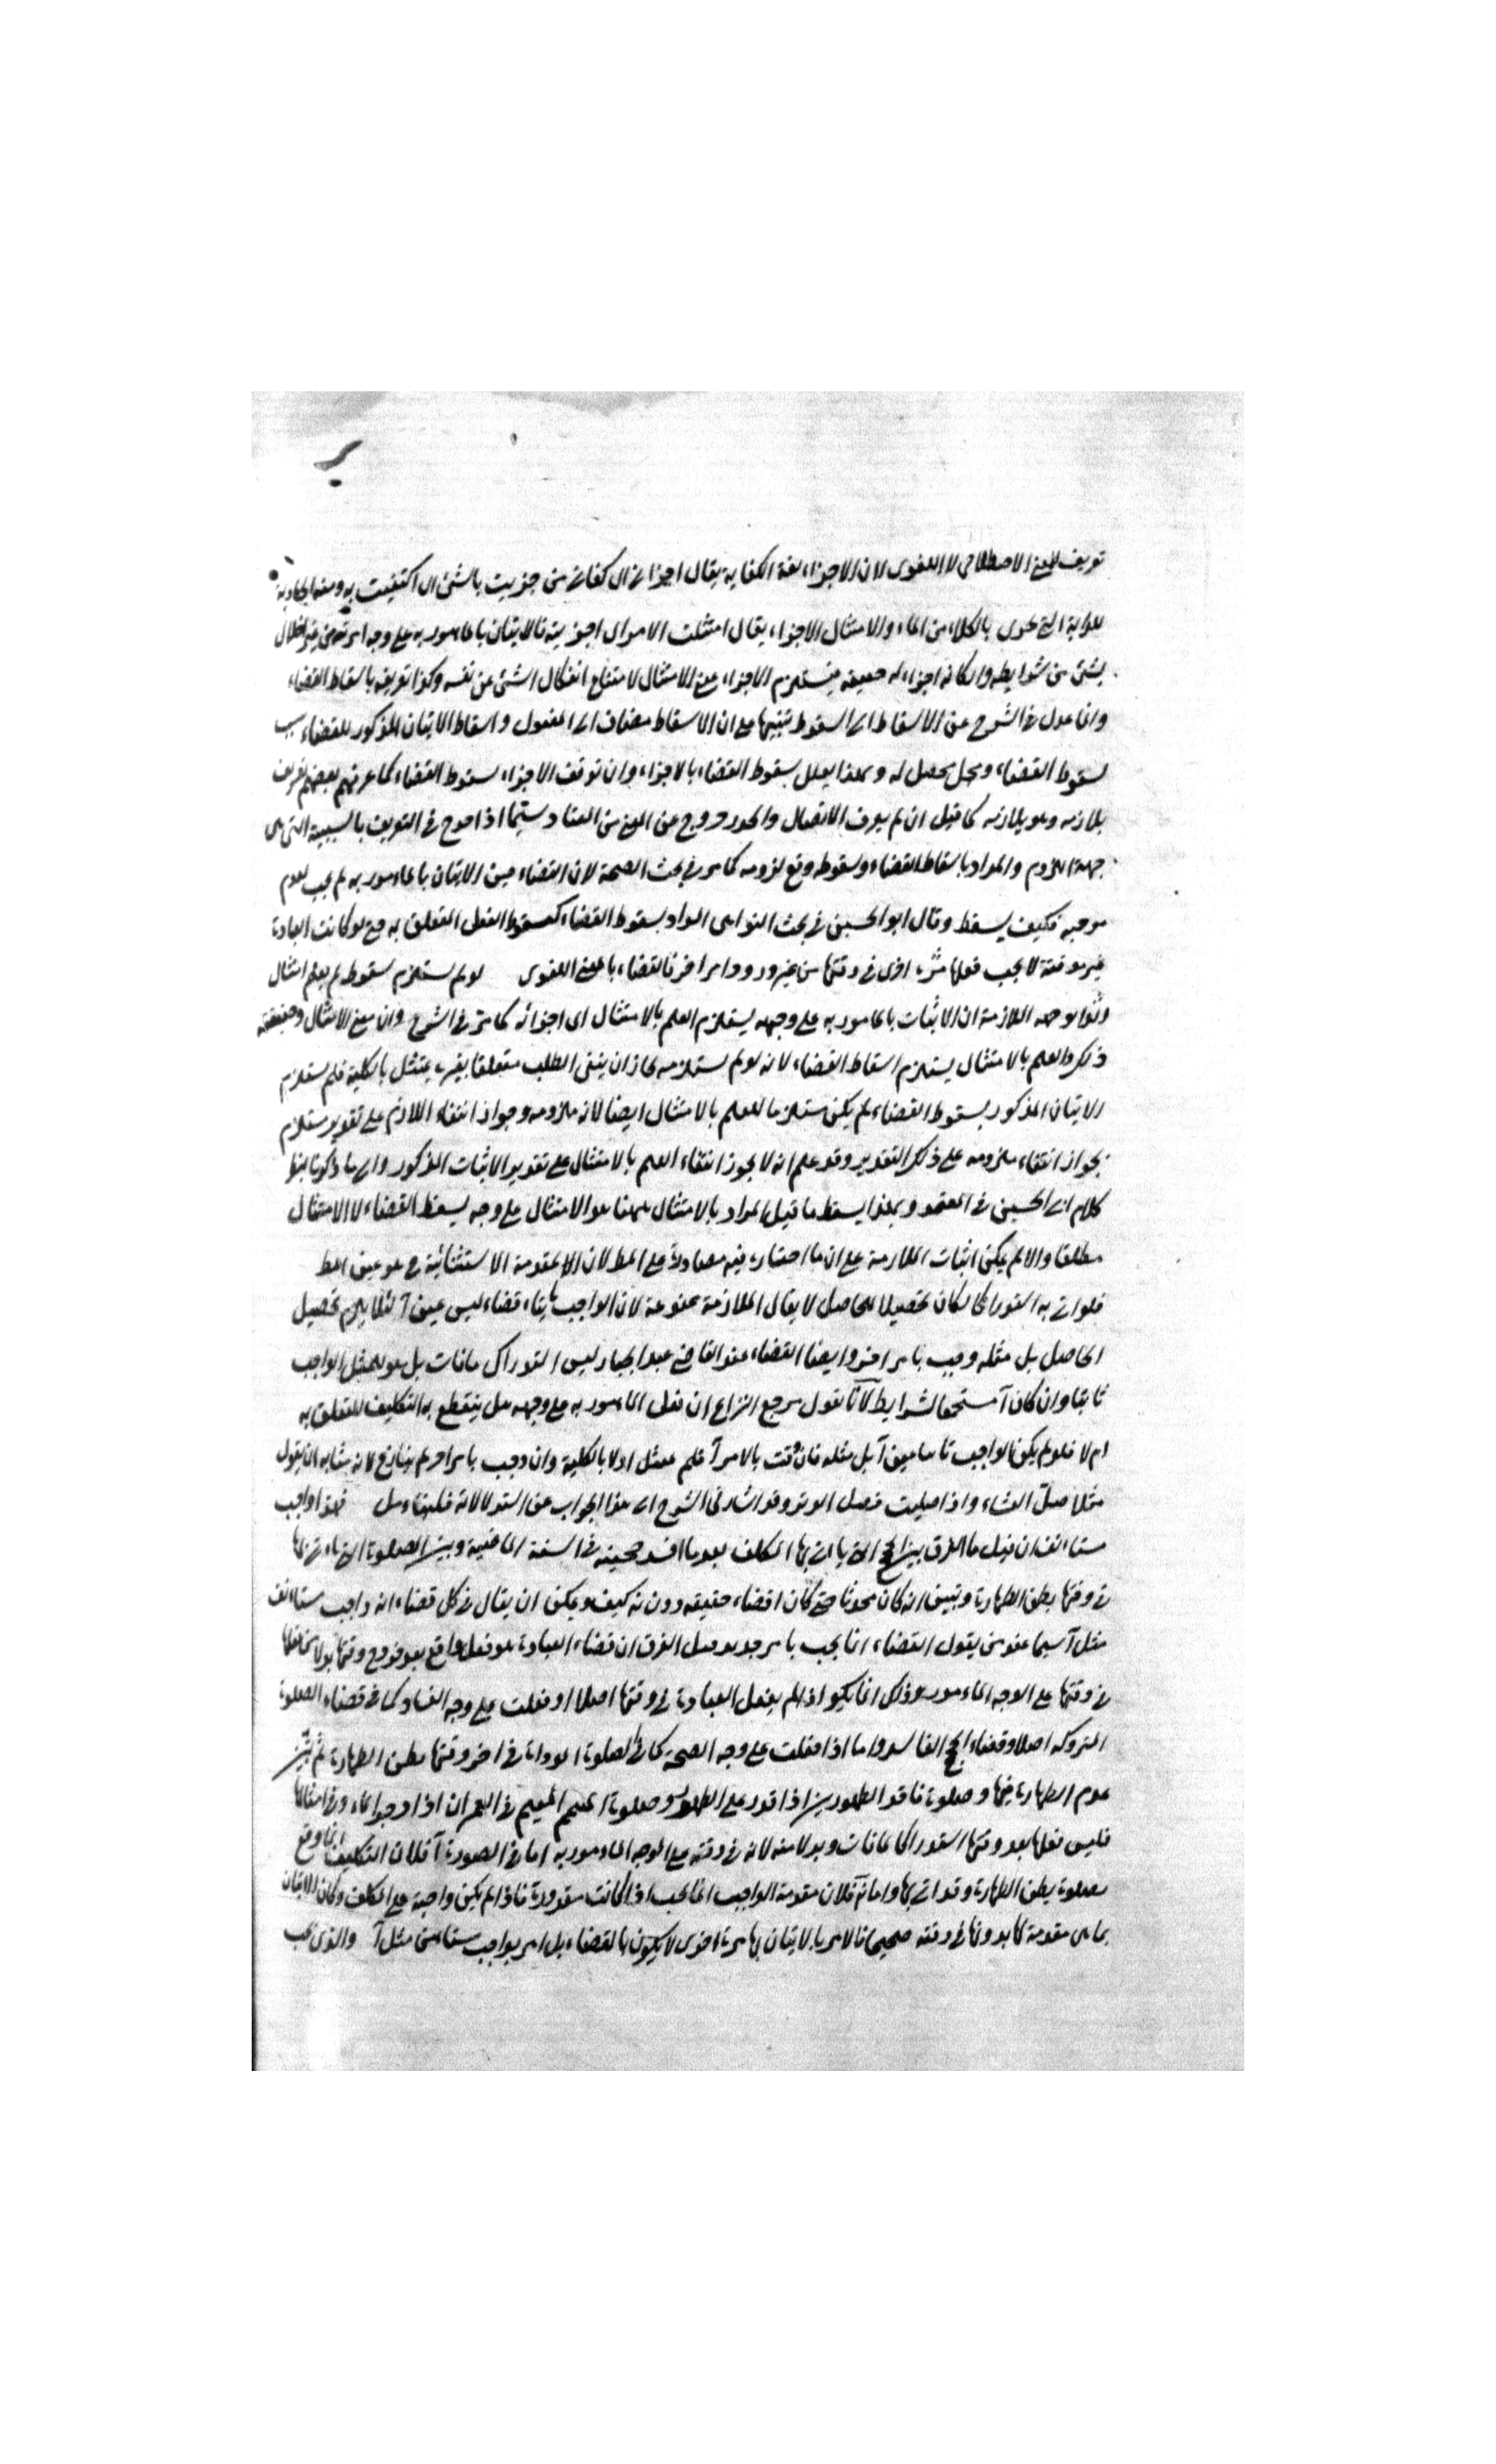 تعريف للمعنى الاصطلاحي لا اللغوى لان الاجزاء لغة الكفاية يقال اجزانى اى كفانى من جزيت بالشئ اى اكتفيت به ومنه الجازية
للدابة التى تجزى بالكلاء من الماء والامتثال الاجزاء يقال امتثلت الامر اى اجزيته فالاتيان بالمامور به على وجه امر به من غير اخلال
بشئ من شرايطه واركانه اجزاء له حقيقة فيستلزم الاجزاء بمعنى الامتثال لامتناع انفكاك الشئ عن نفسه وكذا تعريفه باسقاط القضاء
وانما عدل فى الشرح عن الاسقاط الى السقوط تنبيها على ان الاسقاط مضاف الى المفعول واسقاط الاتيان المذكور للقضاء سبب
لسقوط القضاء ومحل يحصل له وبهذا يعلل سقوط القضاء بالاجزاء وان توقف الاجزاء سقوط القضاء كما عرفه بعضهم تعريف
بلازمه وهو يلازمه كما قيل ان لم يعرف الانفصال والحدر خروج عن المعنى من العناد سيما اذا صرح فى التعريف بالسببية التى هى
جهة اللزوم والمراد باسقاط القضاء وسقوطه رفع لزومه كما مر فى بحث الصحة لان القضاء حين الاتيان بالمامور به لم يجب لعدم
موجبه فكيف يسقط وقال ابو الحسين فى بحث النواهى المراد بسقوط القضاء سقوط الفعل المتعلق به مع لو كانت العبادة
غير موقتة لا يجب فعلها مرة اخرى فى وقتها من غير ورود امر اخر فالقضاء بالمعنى اللغوى لو لم يستلزم سقوطه لم يعلم امتثال
وتوجيه الملازمة ان الاتيان بالمامور به على وجهه يستلزم العلم بالامتثال اى اجزائه كما مر فى الشرح وان معنى الامتثال وحقيقته
ذلك والعلم بالامتثال يستلزم اسقاط القضاء لانه لو لم يستلزمه لجاز ان يبقى الطلب متعلقا بغير ممتثل بالكلية فلو لم يستلزم
الاتيان المذكور سقوط القضاء لم يكن مستلزما للعلم بالامتثال ايضا لانه ملزومه وجواز انتفاء اللازم على تقدير مستلزم
لجواز انتفاء ملزومه على ذلك التقدير وقد علم انه لا يجوز انتفاء العلم بالامتثال على تقدير الاتيان المذكور والى ما ذكرنا ينظر
كلام ابى الحسين فى المعتمد وبهذا يسقط ما قيل المراد بالامتثال ههنا هو الامتثال على وجه يسقط القضاء لا الامتثال
مطلقا والا لم يكن اثبات الملازمة على ان ما اختاره فيه مصادرة على المط لان المقدمة الاستثنائية ح هو عين المط
فلو اتى به استدراكا لكان تحصيلا للحاصل لا يقال الملازمة ممنوعة لان الواجب ثانيا قضاء ليس عين الاول فلا يلزم تحصيل
الحاصل بل مثله وجب بامر اخر وايضا القضاء عند القاضى عبد الجبار ليس استدراك ما فات بل هو المثل الواجب
ثانيا وان كان آ مستجمعا لشرايط لانا نقول مرجع النزاع ان فعل المامور به على وجهه هل ينقطع به التكليف المتعلق به
ام لا فلو لم يكن الواجب ثانيا عين آ بل مثله فان وقت بالامر آ فلم يمتثل اولا بالكلية وان وجب بامر اخر لم ينازع لانه بمثابة ان يقول
مثلا صل العشاء واذا صليت فصل الوتر وقد اشار فى الشرح الى هذا الجواب عن استدلاله فهذا واجب
مستانف ان قيل ما الفرق بين الحج الذى ياتى بها المكلف بعد ما افسد حجته فى السنة الماضية وبين الصلوة التى ياتى بها
فى وقتها بظن الطهارة وتبين انه كان محدثا حتى كان قضاء حقيقة دون ته كيف ويمكن ان يقال فى كل قضاء انه واجب مستانف
مثل آ سيما عند من يقول القضاء انما يجب بامر جديد قيل الفرق ان قضاء العبادة هو فعل واقع بعد خروج وقتها بدلا عن فعلها
فى وقتها على الوجه المامور وذلك انما يكون اذا لم يفعل العبادة فى وقتها اصلا او فعلت على وجه الفساد كما فى قضاء الصلوة
المتروكة اصلا وقضاء الحج الفاسد واما اذا فعلت على وجه الصحة كما فى الصلوة المؤداة فى اخر وقتها بظن الطهارة ثم تبين
عدم الطهارة فيها وصلوة فاقد الطهورين اذا قدر على الطهور وصلوة المتيمم المقيم فى العمران اذا وجد الماء وفى امثالها
فليس فعلها بعد وقتها استدراكا لما فات وبدلا منه لانه فى وقته مع الوجه المامور به اما فى الصورة آ فلان التكليف انما وقع
بصلوة بظن الطهارة وقد اتى بها واما ته فلان مقدمة الواجب انما تجب اذا كانت مقدورة فاذا لم يكن واجبة على المكلف وكان الاتيان
بما هى مقدمة لها بدونها فى وقته صحيحا فالامر بالاتيان بها مرة اخرى لا يكون بالقضاء بل امر بواجب مستانف مثل آ والذى يجب